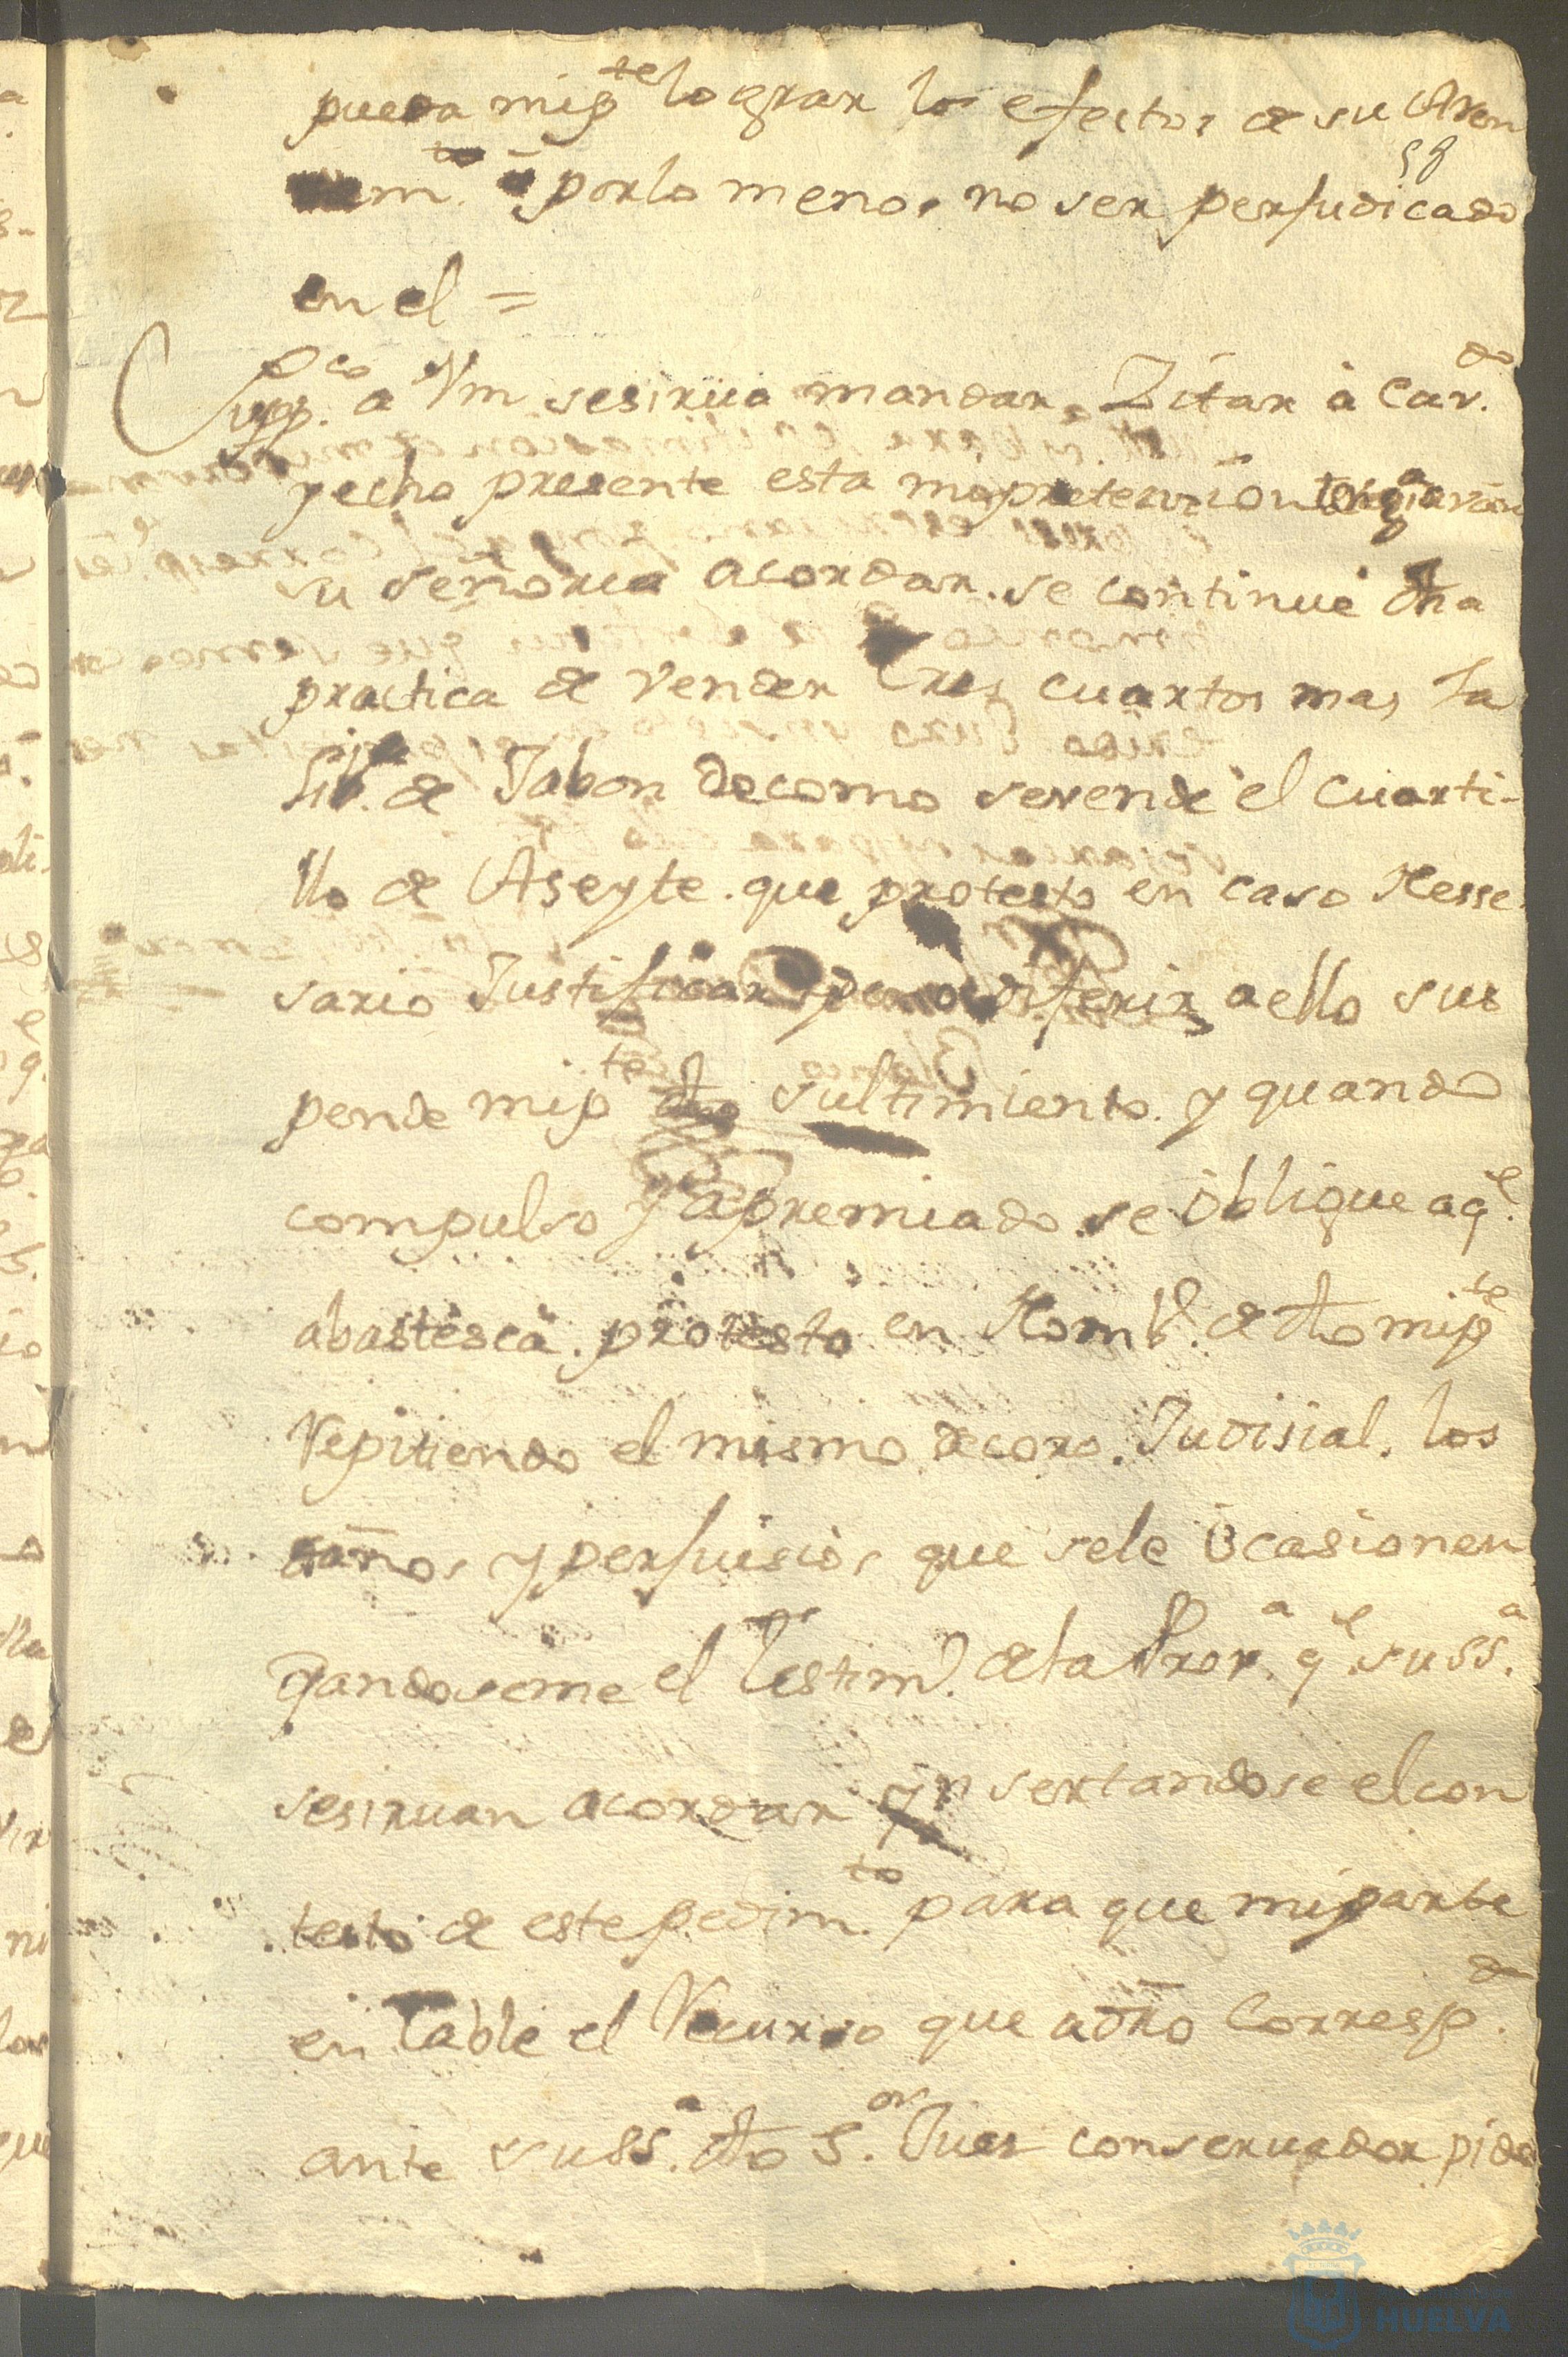 pueda mi p.te lograr los efectos de su Aren
59
dam.to ô por lo menos no ser perjudicado
en el =
Supp.co a Vm se sirua mandar Zitar â Cav.do
y echo presente esta mi pretension
su señoria acordar se continue dha
practica de vender tres cuartos mas la
lib.a de Jabon de como se vende el cuarti-
llo de Aseyte que protesto en caso Nesse
sario Justificar pero diferir a ello sus
pende mi p.te dho sultimiento y quando
compulso y apremiado se obligue a q.e
abastesca protesto en Nomb.e de dho mi p.te
Repitiendo el mismo decoro Judisial los
daños y perjuisios que se le ocasionen
dandoseme el Testim.o de la Prov.a q.e su ss.a
se siruan acordar yn sertandose el con
testo de este pedim.to para que mi parte
en table el Recurso que a dro Corresp.da
ante su ss.a dho S.or Juez conseruador pido
HUELVA